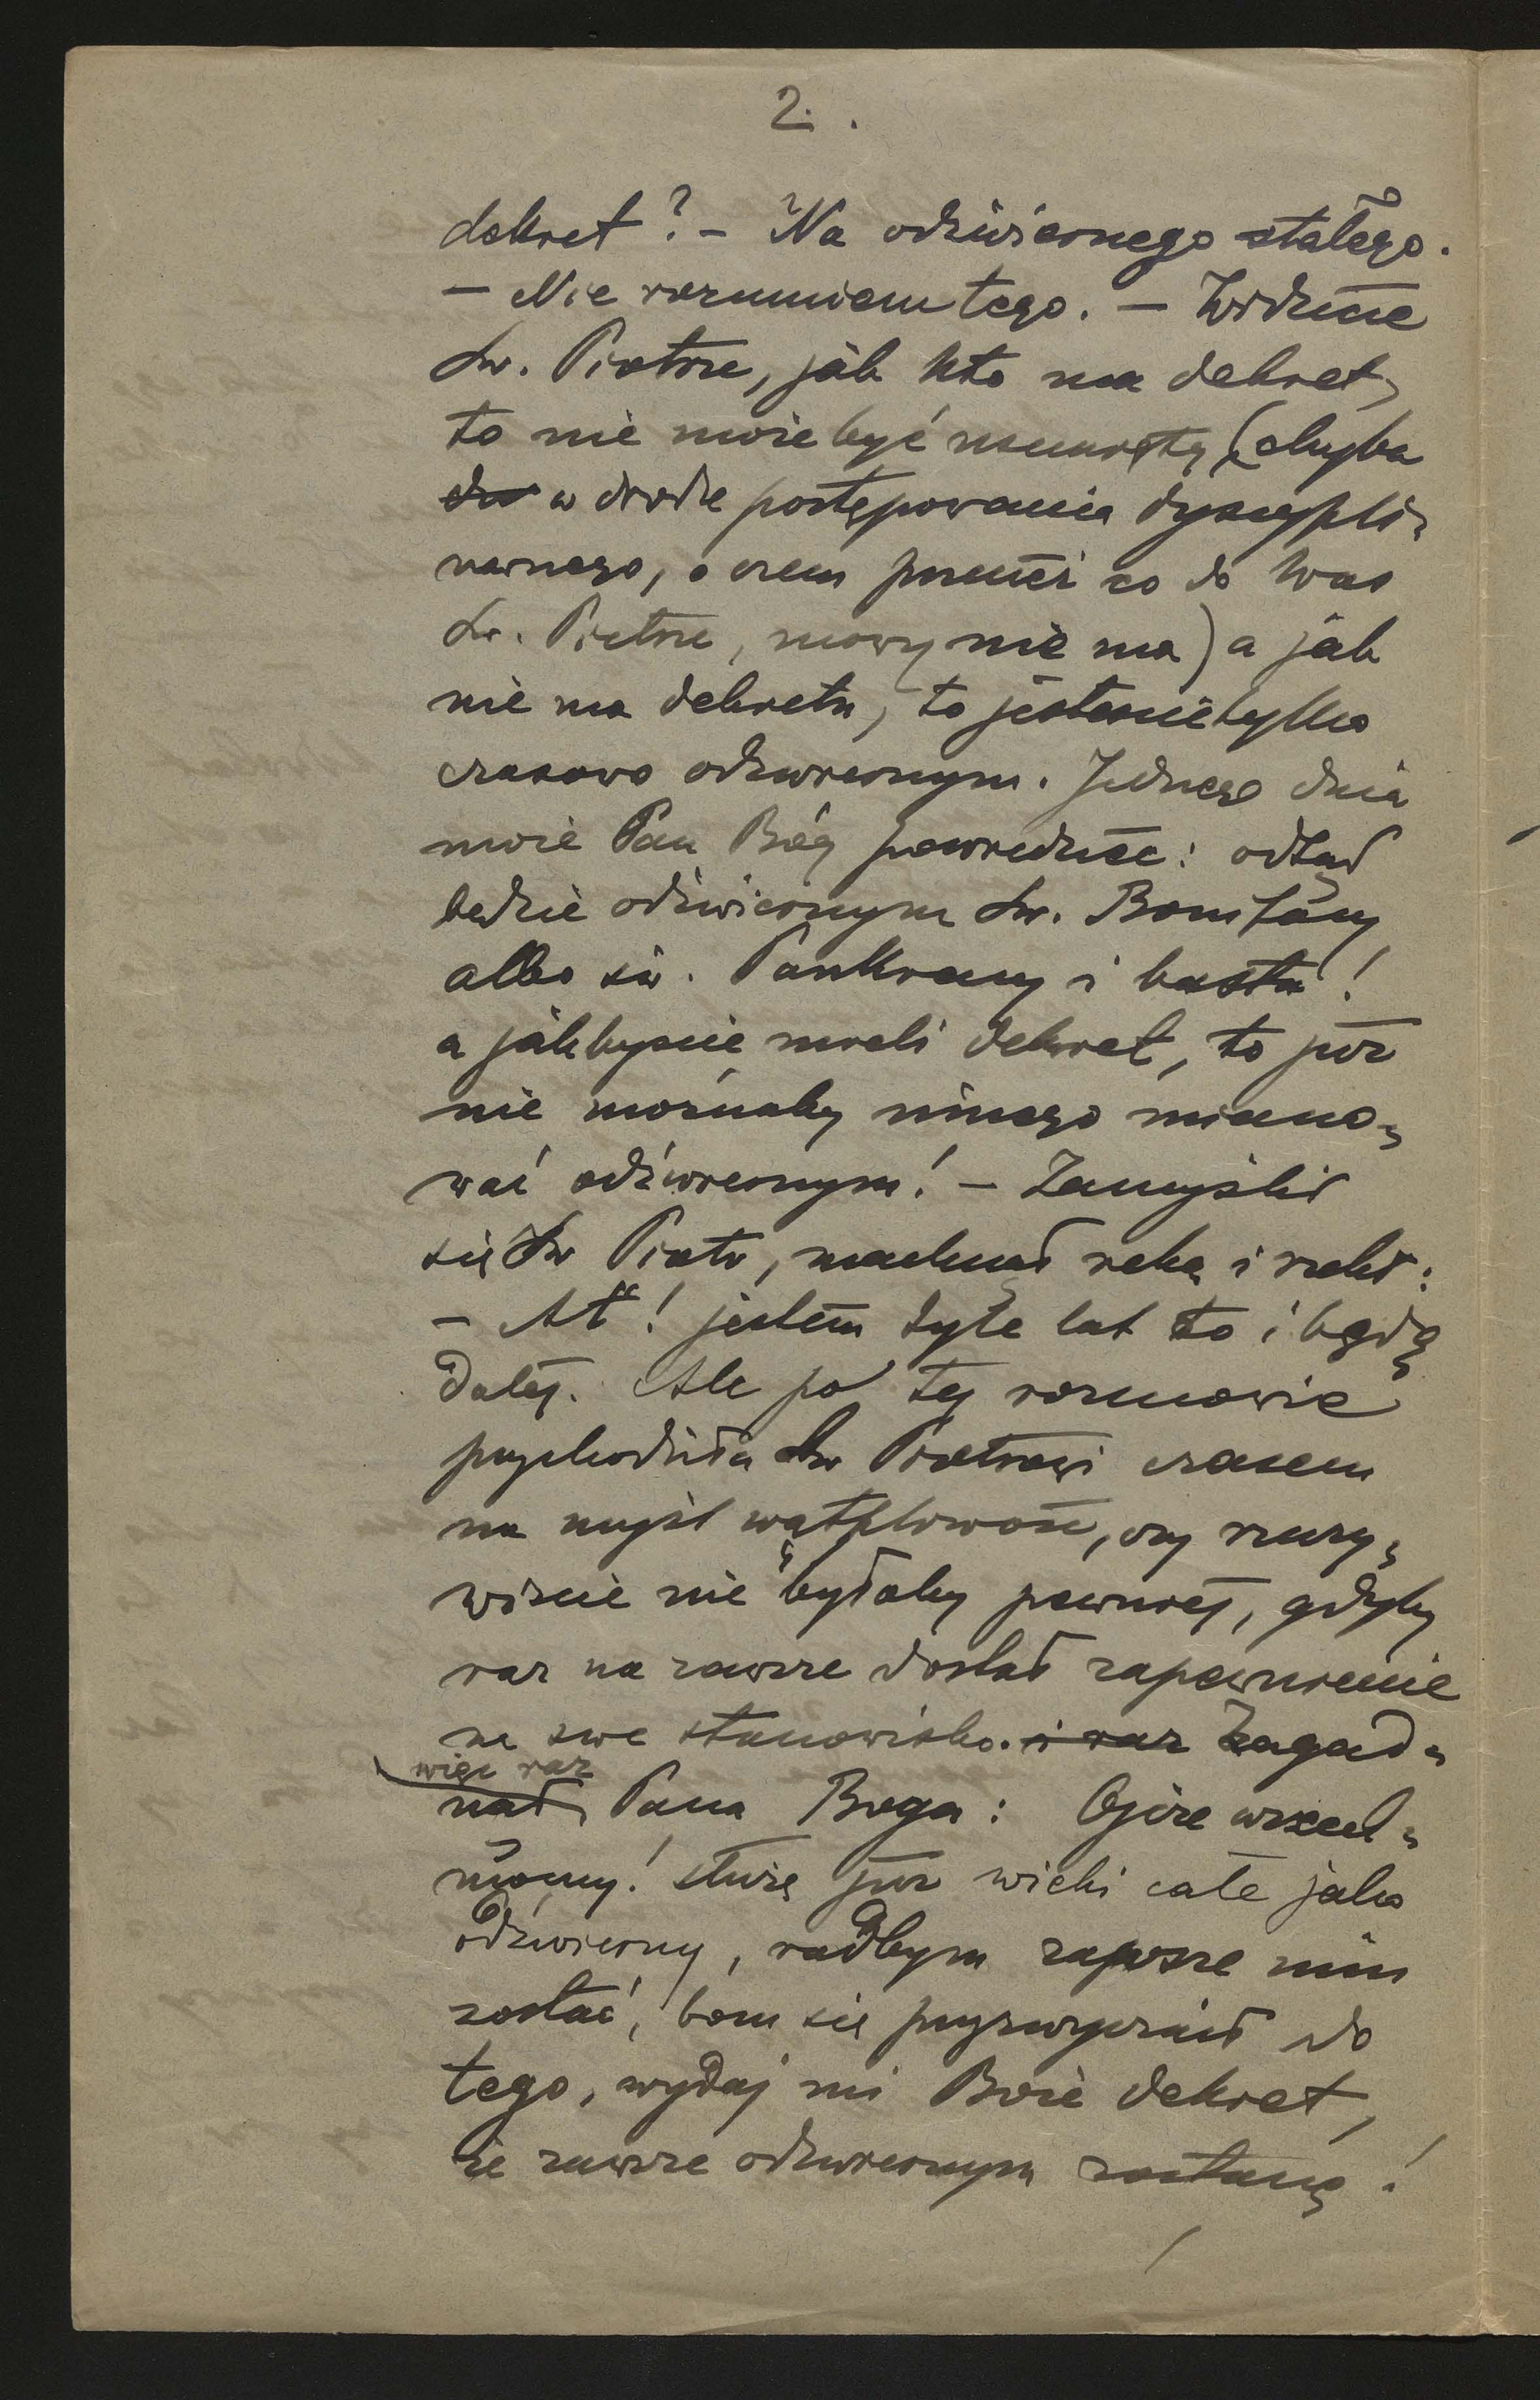 2.
dekret? – Na odźwiernego stałego.
– Nie rozumiem tego. – Widzicie
Św. Piotrze, jak kto ma dekret,
to nie może być usunięty (chyba
w drodze postępowania dyscypli-
narnego, o czem przecież co do Was
Św. Piotrze, mowy nie ma) a jak
nie ma dekretu, to jesteście tylko
czasowo odźwiernym. Jednego dnia
może Pan Bóg powiedzieć: odtąd
będzie odźwiernym św. Bonifacy
albo św. Pankracy i basta!
a jakbyście mieli dekret, to już
nie możnaby innego miano-
wać odźwiernym! – Zamyślił
się Św Piotr, machnął ręką i rzekł:
– At! jestem tyle lat to i będę
dalej. Ale po tej rozmowie
przychodziła Św Piotrowi czasem
na myśl wątpliwość, czy rzeczy-
wiście nie byłoby pewniej, gdyby
raz na zawsze dostał zapewnienie
na swe stanowisko. i raz Zagad-
więc raz
nął Pana Boga: Ojcze wszech-
mocny! służę już wieki całe jako
odźwierny, radbym zawsze nim
zostać, bom się przyzwyczaił do
tego, wydaj mi Boże dekret,
że zawsze odźwiernym zostanę!